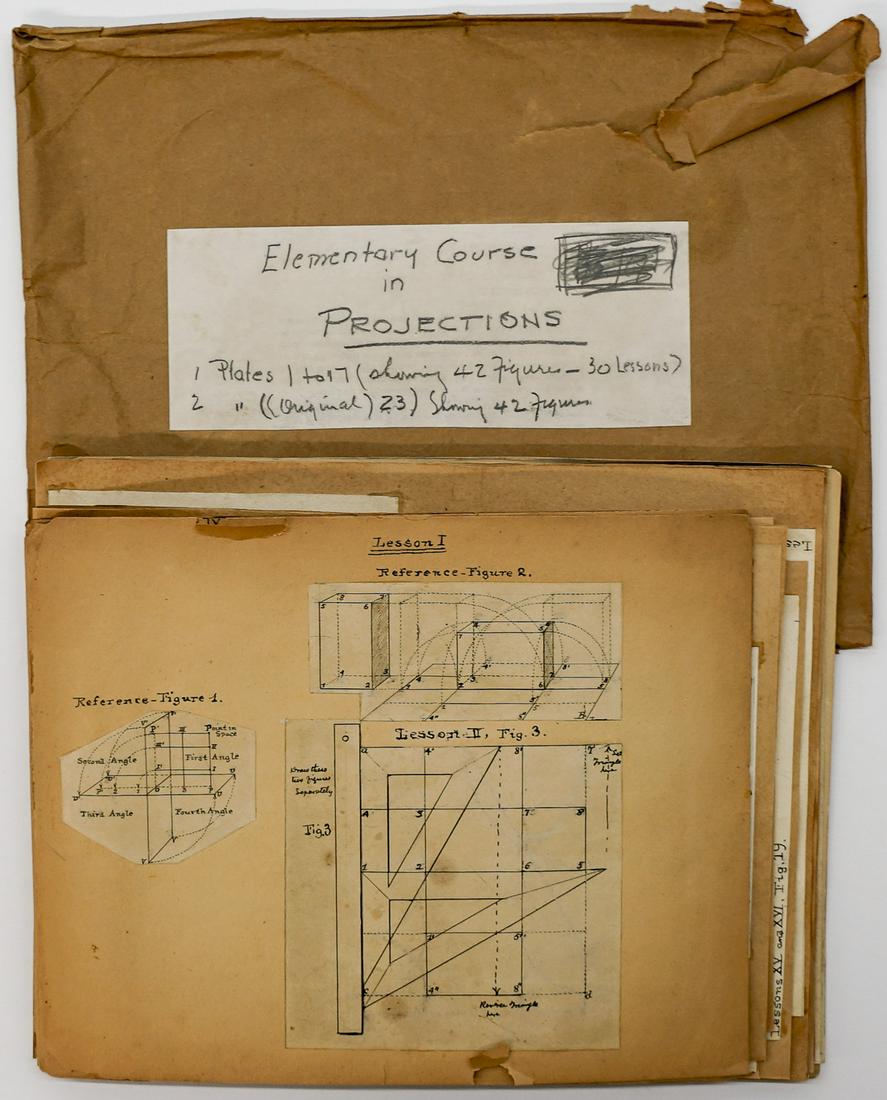 Elementary Course
in
PROJECTIONS
1 Plates 1 to 17 (showing 42 Figures - 30 Lessons)
2 " ((Original) 23) Showing 42 Figures
Lesson I
Reference-Figure 2.
5 8 7 6
1 4 3 2
Reference-Figure 1.
Point in
Space
Second Angle First Angle
Third Angle Fourth Angle
Lesson-II, Fig. 3.
Draw these
two figures
Separately
Fig.3
a 4' 8' T Set
Triangle
4 3 7 8
1 2 6 5
c 4" 8" d
Reverse Triangle
Lessons XV and XVI, Fig. 19.